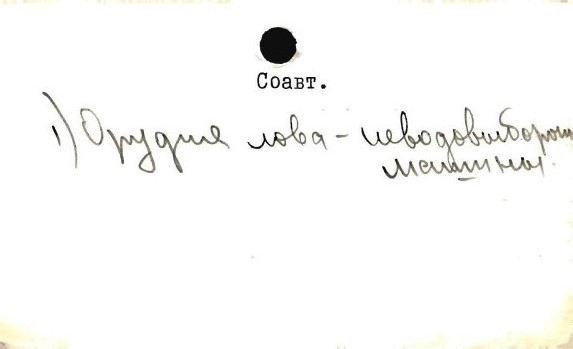 Соавт.
1) Орудия лова - неводовыбороч
машины.